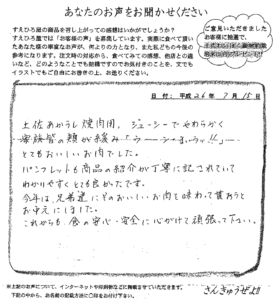 あなたのお声をお聞かせください
すえひろ屋の商品を召し上がっての感想はいかがでしょうか?
すえひろ屋では「お客様の声」を募集しています。実際に食べて頂い
たあなた様の率直なお声が、何よりの力となり、また私どもの今後の
参考になります。注文時の対応から、食べてみての感想、他店との違
いなど、どのようなことでも結構ですのでお気付きのことを、文でも
イラストでもご自由にお書きの上、お送りください。
ご意見いただきました
お客様に抽選で、
日付:平成26年7月15日
土佐あかうし焼肉用、ジューシーでやわらかく
家族皆の顔が緩み
とてもおいしいお肉でした。
パンフレットも商品の紹介が丁寧に記されていて
わかりやすくとても良かったです。
今年は、北海道にこのおいしいお肉を味わって貰おうと
お中元にしました。
これからも、食の安心・安全に心がけて頑張って下さい。
※上記のお声について、インターネットや印刷物などに掲載させていただきます。
下記の中から、お名前の記載方法に○印をお付け下さい。
さんきゅうぜよ!!